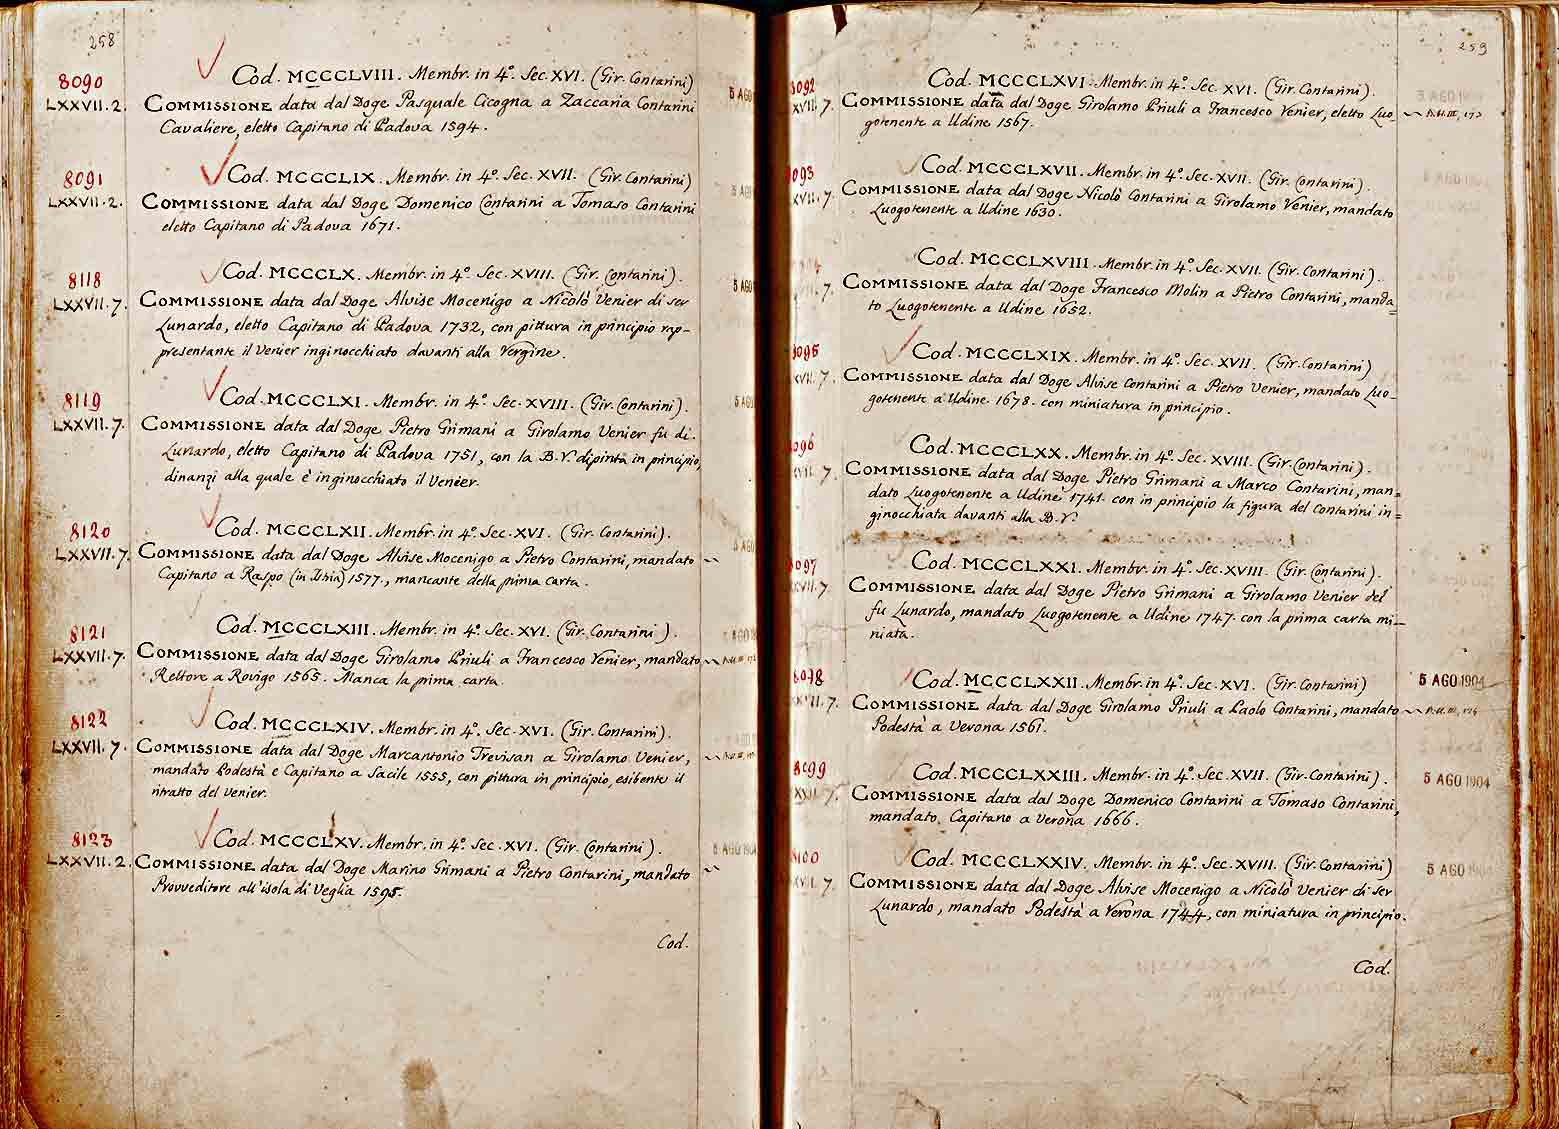 258
8090
LXXVII. 2.
Cod. MCCCLVIII. Membr. in 4º. Sec. XVI. (Gir. Contarini)
COMMISSIONE data dal Doge Pasquale Cicogna a Zaccaria Contarini
Cavaliere, eletto Capitano di Padova 1594.
5 AGO
8091
LXXVII. 2.
Cod. MCCCLIX. Membr. in 4º. Sec. XVII. (Gir. Contarini)
COMMISSIONE data dal Doge Domenico Contarini a Tomaso Contarini
eletto Capitano di Padova 1671.
5 AGO
8118
LXXVII. 7.
Cod. MCCCLX. Membr. in 4º. Sec. XVIII. (Gir. Contarini).
COMMISSIONE data dal Doge Alvise Mocenigo a Nicolò Venier di ser
Lunardo, eletto Capitano di Padova 1732, con pittura in principio rap-
presentante il Venier inginocchiato davanti alla Vergine.
5 AGO
8119
LXXVII. 7.
Cod. MCCCLXI. Membr. in 4º. Sec. XVIII. (Gir. Contarini).
COMMISSIONE data dal Doge Pietro Grimani a Girolamo Venier fu di.
Lunardo, eletto Capitano di Padova 1751, con la B. V. dipinta in principio,
dinanzi alla quale è inginocchiato il Venier.
5 AGO
8120
LXXVII. 7.
Cod. MCCCLXII. Membr. in 4º. Sec. XVI. (Gir. Contarini).
COMMISSIONE data dal Doge Alvise Mocenigo a Pietro Contarini, mandato
Capitano a Raspo (in Istria) 1577., mancante della prima carta.
5 AGO
8121
LXXVII. 7.
Cod. MCCCLXIII. Membr. in 4º. Sec. XVI. (Gir. Contarini).
COMMISSIONE data dal Doge Girolamo Priuli a Francesco Venier, mandato
Rettore a Rovigo 1565. Manca la prima carta.
5 AGO
8122
LXXVII. 7.
Cod. MCCCLXIV. Membr. in 4º. Sec. XVI. (Gir. Contarini).
COMMISSIONE data dal Doge Marcantonio Trevisan a Girolamo Venier,
mandato Podestà e Capitano a Sacile 1555, con pittura in principio, esibente il
ritratto del Venier.
8123
LXXVII. 2.
Cod. MCCCLXV. Membr. in 4º. Sec. XVI. (Gir. Contarini).
COMMISSIONE data dal Doge Marino Grimani a Pietro Contarini, mandato
Provveditore all'isola di Veglia 1595.
5 AGO 190
Cod.
259
8092
XVII. 7.
Cod. MCCCLXVI. Membr. in 4º. Sec. XVI. (Gir. Contarini).
COMMISSIONE data dal Doge Girolamo Priuli a Francesco Venier, eletto Luo-
gotenente a Udine 1567.
5 AGO 190
8093
XVII. 7.
Cod. MCCCLXVII. Membr. in 4º. Sec. XVII. (Gir. Contarini).
COMMISSIONE data dal Doge Nicolò Contarini a Girolamo Venier, mandato
Luogotenente a Udine 1630.
7.
Cod. MCCCLXVIII. Membr. in 4º. Sec. XVII. (Gir. Contarini).
COMMISSIONE data dal Doge Francesco Molin a Pietro Contarini, manda=
to Luogotenente a Udine 1652.
8095
XVII. 7.
Cod. MCCCLXIX. Membr. in 4º. Sec. XVII. (Gir. Contarini)
COMMISSIONE data dal Doge Alvise Contarini a Pietro Venier, mandato Luo-
gotenente a Udine 1678. con miniatura in principio.
8096
XVII. 7.
Cod. MCCCLXX. Membr. in 4º. Sec. XVIII. (Gir. Contarini).
COMMISSIONE data dal Doge Pietro Grimani a Marco Contarini, man=
dato Luogotenente a Udine 1741. con in principio la figura del Contarini in=
ginocchiata davanti alla B. V.
8097
XVII. 7.
Cod. MCCCLXXI. Membr. in 4º. Sec. XVIII. (Gir. Contarini).
COMMISSIONE data dal Doge Pietro Grimani a Girolamo Venier del
fu Lunardo, mandato Luogotenente a Udine 1747. con la prima carta mi-
niata.
XVII. 7.
Cod. MCCCLXXII. Membr. in 4º. Sec. XVI. (Gir. Contarini)
COMMISSIONE data dal Doge Girolamo Priuli a Paolo Contarini, mandato
Podestà a Verona 1561.
5 AGO 1904
8099
Cod. MCCCLXXIII. Membr. in 4º. Sec. XVII. (Gir. Contarini).
COMMISSIONE data dal Doge Domenico Contarini a Tomaso Contarini,
mandato Capitano a Verona 1666.
5 AGO 1904
8100
XVII. 7.
Cod. MCCCLXXIV. Membr. in 4º. Sec. XVIII. (Gir. Contarini)
COMMISSIONE data dal Doge Alvise Mocenigo a Nicolò Venier di ser
Lunardo, mandato Podestà a Verona 1744, con miniatura in principio.
5 AGO 1904
Cod.